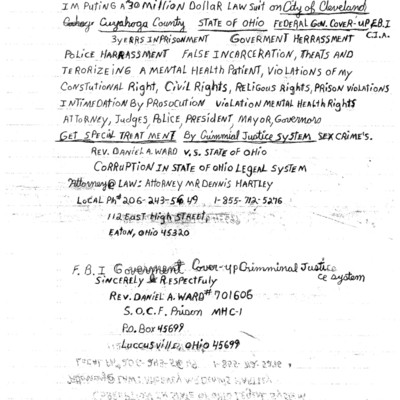 IM PUTING A 30 MILLION DOLLAR LAW SUIT ON CITY OF CLEVELAND
CUYAHOGA COUNTY STATE OF OHIO FEDERAL GOV. COVER-UP F.B.I
C.I.A.
3 YERRS INPRISONMENT GOVERMENT HERRASSMENT
POLICE HARRASSMENT FALSE INCARCERATION, THEATS AND
TERORIZEING A MENTAL HEALTH PATIENT, VIOLATIONS OF MY
CONSTUTIONAL RIGHT, CIVIL RIGHTS, RELIGOUS RIGHTS, PRISON VIOLATIONS
INTIMEDATION BY PROSOCUTION VIOLATION MENTAL HEALTH RIGHTS
ATTORNEY, JUDGES, POLICE, PRESIDENT, MAYOR, GOVERNORS
GET SPECIAL TREATMENT BY CRIMMIAL JUSTICE SYSTEM SEX CRIME'S.
REV. DANIEL A. WARD V.S. STATE OF OHIO
CORRUPTION IN STATE OF OHIO LEGEAL SYSTEM
ATTORNEY @ LAW: ATTORNEY MR DENNIS HARTLEY
LOCAL PH# 206-243-5649 1-855-712-5276
112 EAST HIGH STREET,
EATON, OHIO 45320
F.B.I GOVERMENT COVER-UP CRIMMINAL JUSTICE
CE SYSTEM
SINCERELY & RESPECTFULY
REV. DANIEL A. WARD # 701606
S.O.C.F. PRISON MHC-1
P.O. BOX 45699
LUCCUSVILLE, OHIO 45699